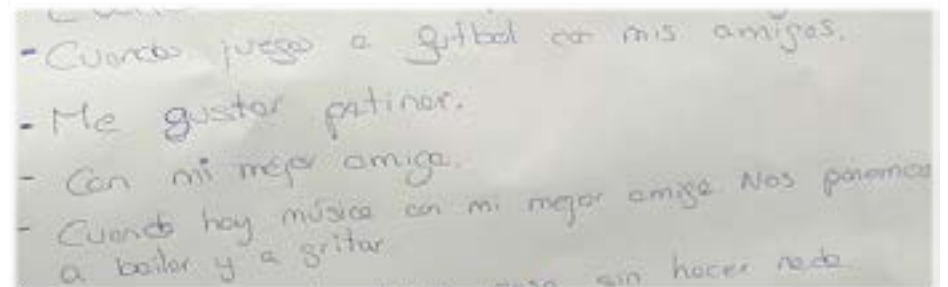 - Cuando juego a futbol con mis amigos.
- Me gustar patinar.
- Con mi mejor amiga.
- Cuando hay música con mi mejor amiga. Nos ponemos
a bailar y a gritar
sin hacer nada